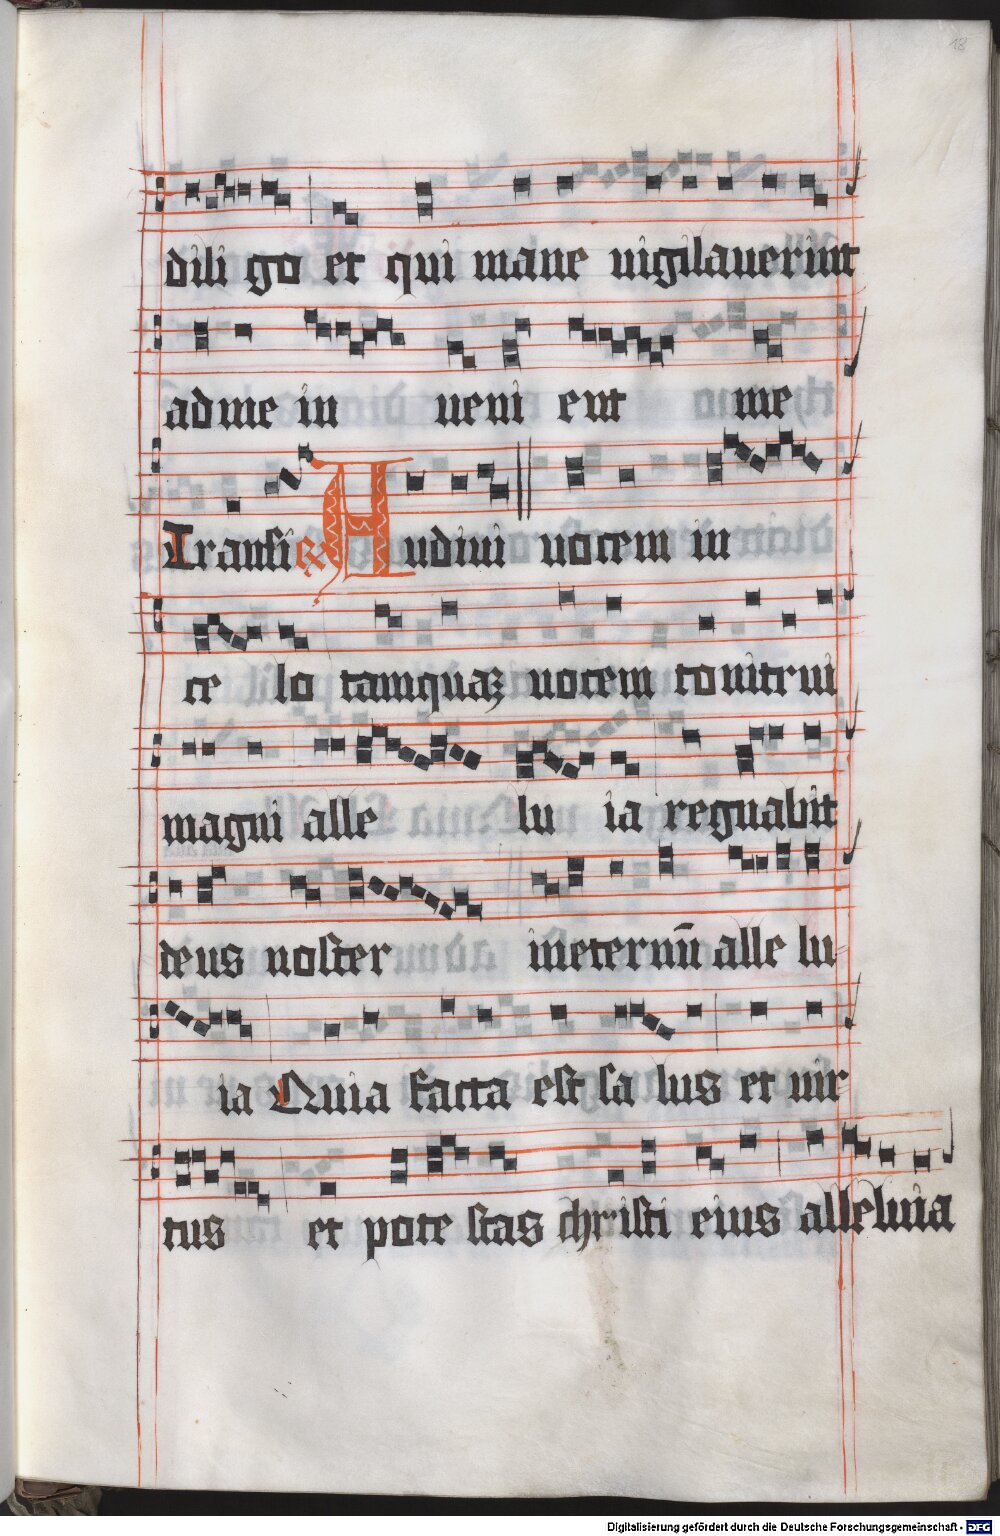 18
dili go et qui mane uigilauerint
ad me in ueni ent me
Transi & Audiui uocem in
ce lo tamquaz uocem tonitrui
magni alle lu ia regnabit
deus noster ineternū alle lu
ia Quia facta est sa lus et uir
tus et pote stas christi eius alleluia
Digitalisierung gefördert durch die Deutsche Forschungsgemeinschaft - DFG